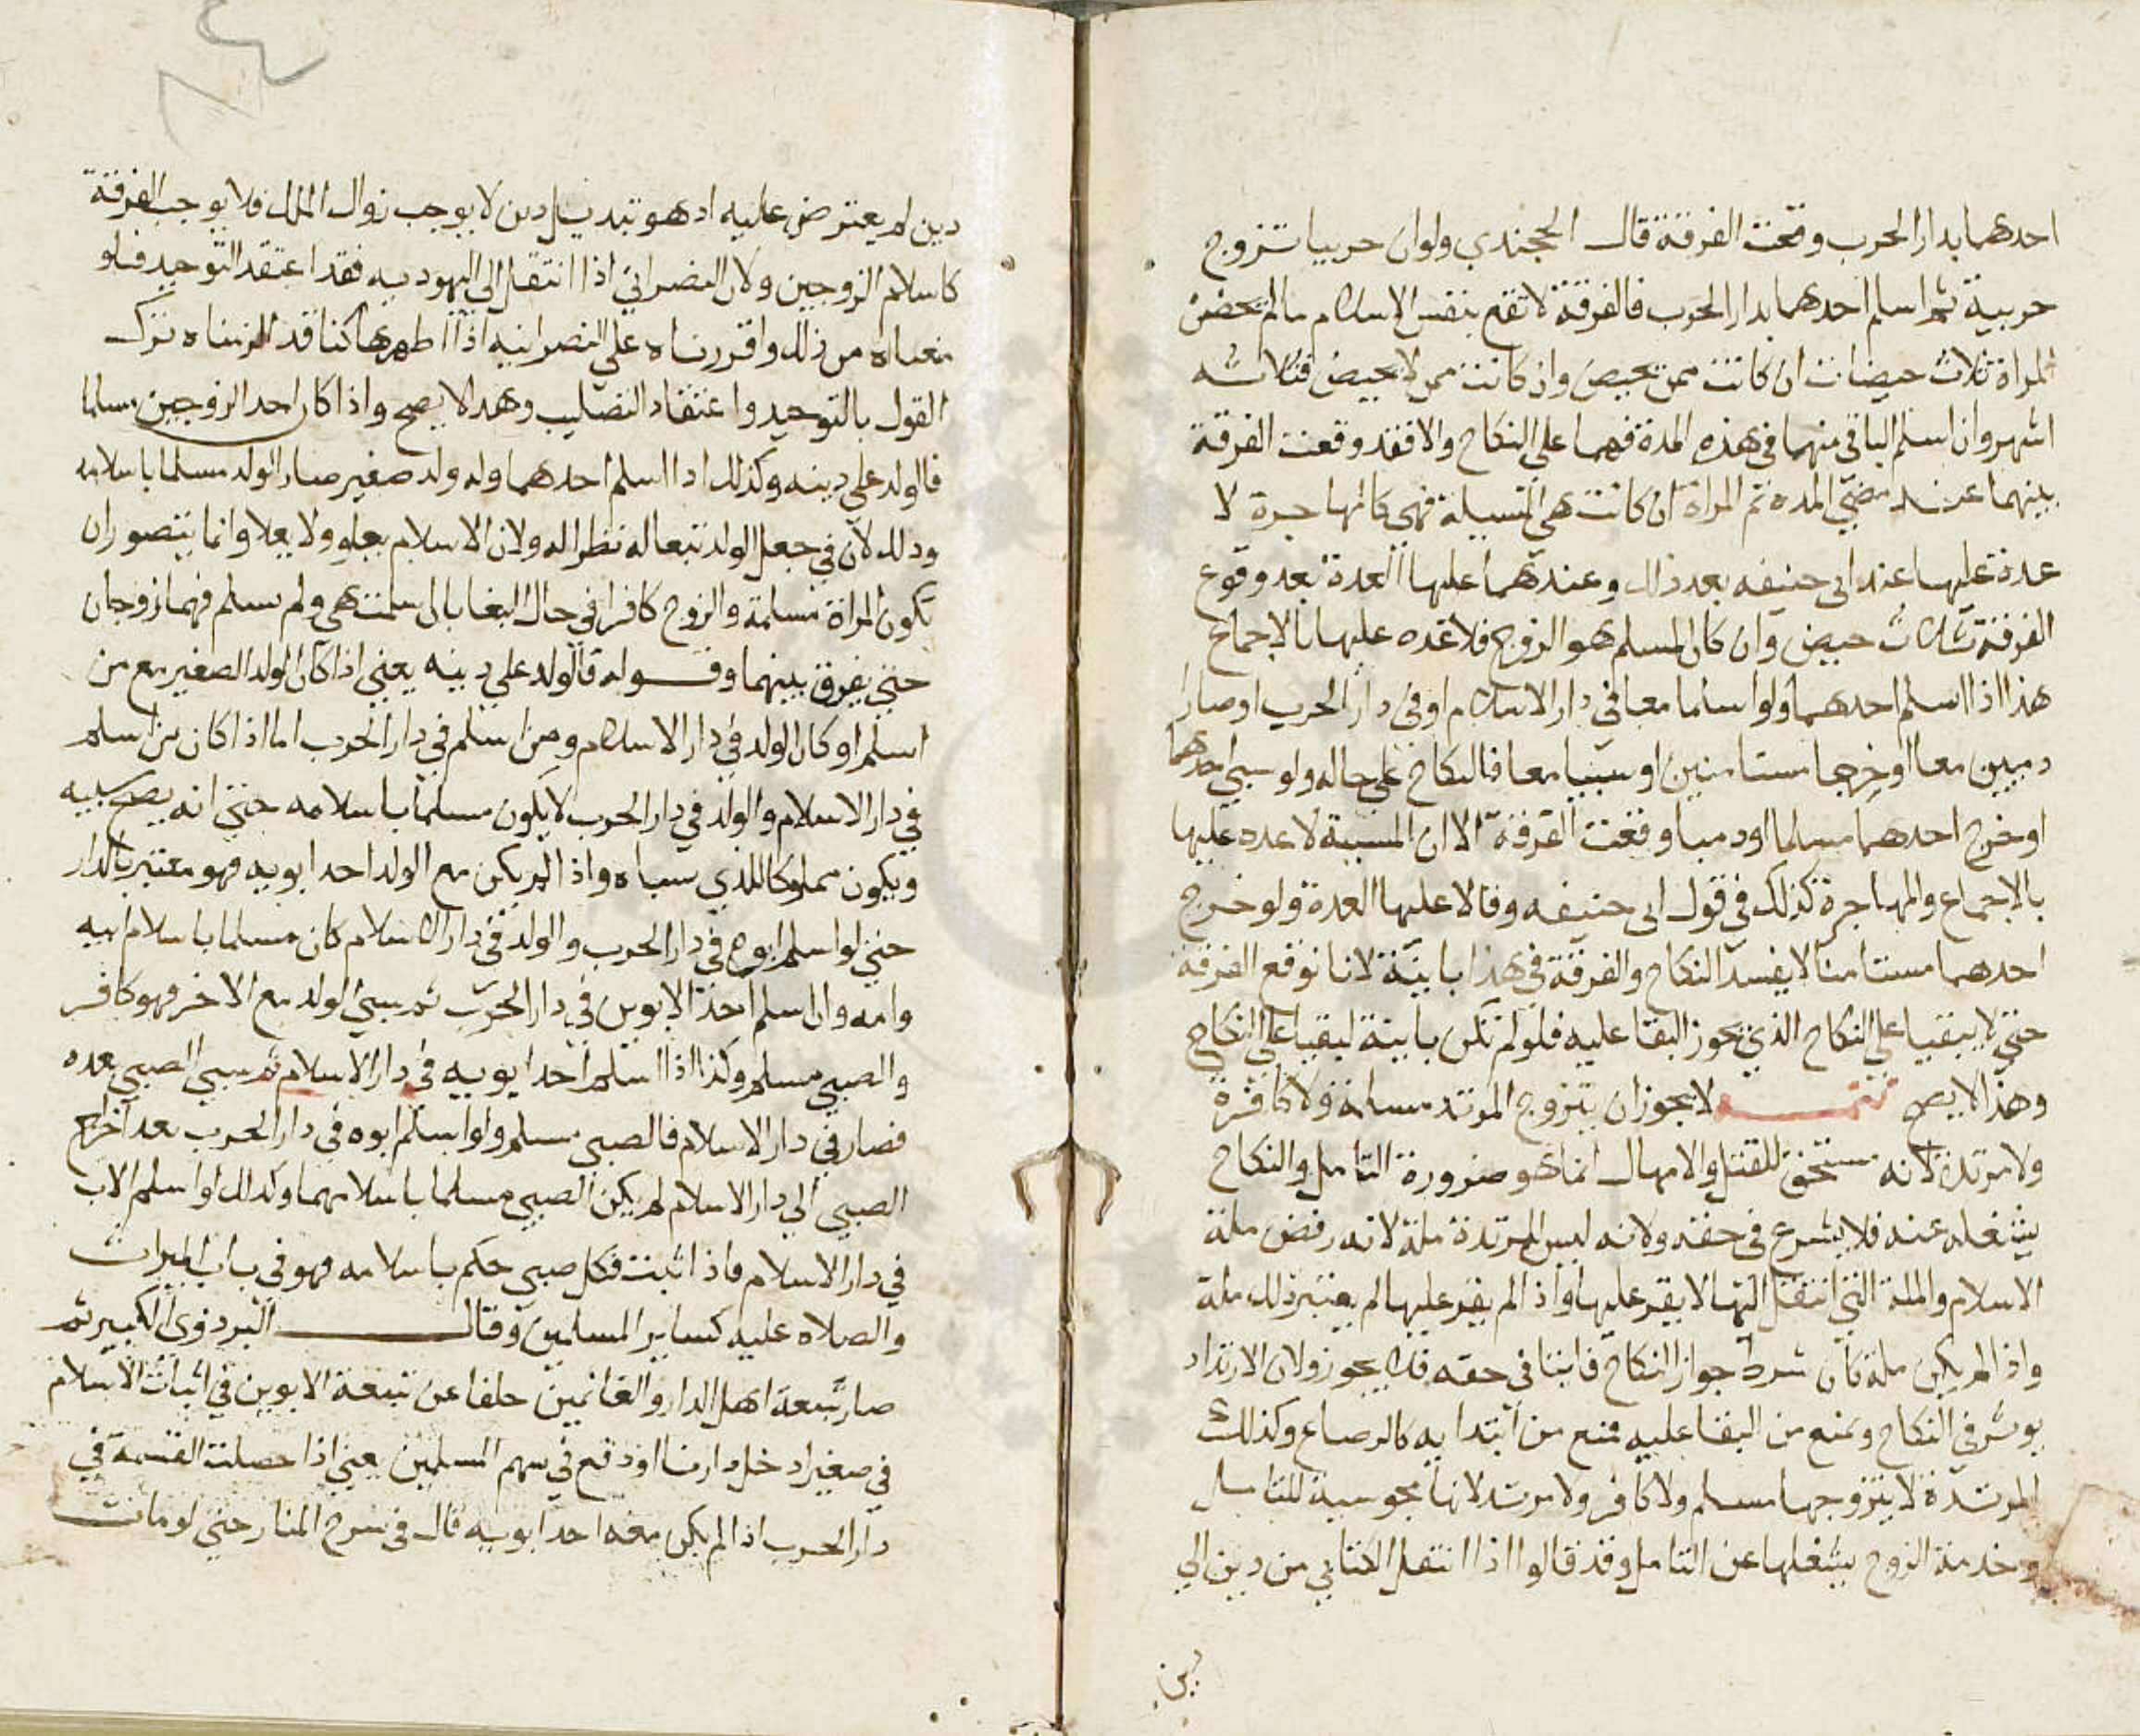 احدهما بدار الحرب وقعت الفرقة قال الخجندي ولو ان حربيا تزوج
حربية ثم اسلم احدهما بدار الحرب فالفرقة لا تقع بنفس الاسلام ما لم تحض
المراة ثلاث حيضات ان كانت ممن تحيض وان كانت ممن لا تحيض فثلاثه
اشهر وان اسلم الباقي منهما في هذه المدة فهما على النكاح والا فقد وقعت الفرقة
بينهما عند مضي المده ثم المراة ان كانت هي المسلمة فهي كالمهاجرة لا
عدة عليها عند ابي حنيفه بعد ذلك وعندهما عليها العدة بعد وقوع
الفرقة ثلاث حيض وان كان المسلم هو الزوج فلا عده عليها بالاجماع
هذا اذا اسلم احدهما ولو اسلما معا في دار الاسلام او في دار الحرب او صارا
دميين معا او خرجا مستامنين او سبيا معا فالنكاح على حاله ولو سبي احدهما
او خرج احدهما مسلما او دميا وقعت الفرقة الا ان المسبية لا عده عليها
بالاجماع والمهاجرة كذلك في قول ابي حنيفه وقالا عليها العدة ولو خرج
احدهما مستامنا لا يفسد النكاح والفرقة في هذا باينة لانا نوقع الفرقة
حتى لا يبقيا على النكاح الذي يجوز البقا عليه فلو لم تكن باينة لبقيا على النكاح
وهذا لا يصح تتمـــة لا يجوز ان يتزوج المرتد مسلمة ولا كافرة
ولا مرتدة لانه مستحق للقتل والامهال انما هو ضرورة التامل والنكاح
يشغله عنه فلا يشرع في حقه ولانه ليس للمرتدة ملة لانه رفض ملة
الاسلام والملة التي انتقل اليها لا يقر عليها واذا لم يقر عليها لم يعتبر ذلك ملة
واذا لم يكن ملة كان شرط جواز النكاح فايتا في حقه فلا يجوز ولان الارتداد
يوثر في النكاح ويمنع من البقا عليه فمنع من ابتدايه كالرضاع وكذلك
المرتدة لا يتزوجها مسلم ولا كافر ولا مرتد لانها محبوسة للتامل
وخدمة الزوج يشغلها عن التامل وقد قالوا اذا انتقل الكتابي من دين الى
دين
دين لم يعترض عليه اد هو تبديل دين لا يوجب زوال الملك فلا يوجب الفرقة
كاسلام الزوجين ولان النصراني اذا انتقل الى اليهوديه فقد اعتقد التوحيد فلو
منعناه من ذلك واقررناه على النصرانيه اذا اظهرها كنا قد الزمناه ترك
القول بالتوحيد واعتقاد التصليب وهدا لا يصح واذا كان احد الزوجين مسلما
فالولد على دينه وكذلك ادا اسلم احدهما وله ولد صغير صار الولد مسلما باسلامه
ودلك لان في جعل الولد تبعا له نظرا له ولان الاسلام يعلو ولا يعلا وانما يتصور ان
تكون المراة مسلمة والزوج كافرا في حال البقا بان اسلمت هي ولم يسلم فهما زوجان
حتى يفرق بينهما وقـــوله فالولد على دينه يعني اذا كان الولد الصغير مع من
اسلم او كان الولد في دار الاسلام ومن اسلم في دار الحرب اما اذا كان من اسلم
في دار الاسلام والولد في دار الحرب لا يكون مسلما باسلامه حتى انه يصح سبيه
ويكون مملوكا للذي سباه واذا لم يكن مع الولد احد ابويه فهو معتبر بالدار
حتى لو اسلم ابوه في دار الحرب والولد في دار الاسلام كان مسلما باسلام ابيه
وامه وان اسلم احد الابوين في دار الحرب ثم سبي الولد مع الاخر فهو كافر
والصبي مسلم وكذا اذا اسلم احد ابويه في دار الاسلام ثم سبي الصبي بعده
فصار في دار الاسلام فالصبي مسلم ولو اسلم ابوه في دار الحرب بعد اخراج
الصبي الى دار الاسلام لم يكن الصبي مسلما باسلامهما وكدلك لو اسلم الاب
في دار الاسلام فاذا ثبت فكل صبي حكم باسلامه فهو في باب الميراث
والصلاه عليه كساير المسلمين وقالـــــ البزدوى الكبير ثم
صار تبعة اهل الدار والغانمين خلفا عن تبعة الابوين في اثبات الاسلام
في صغير ادخل دارنا او وقع في سهم المسلمين يعني اذا حصلت القسمة في
دار الحرب اذا لم يكن معه احد ابويه قال في شرح المنار حتى لو مات